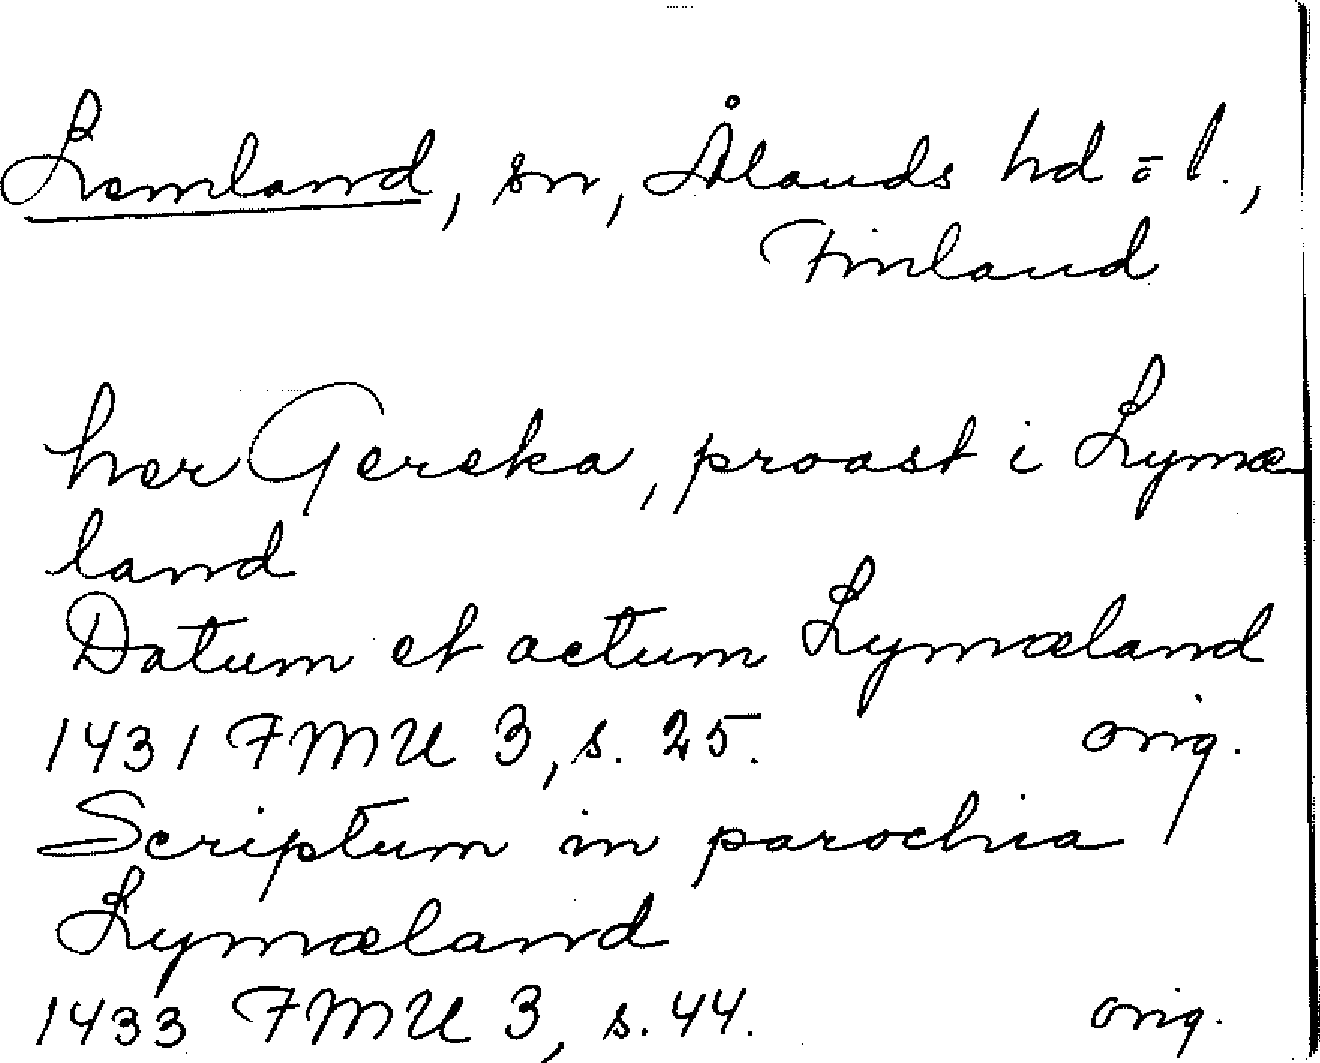 Lemland, sn, Ålands hd o l.,
Finland
her Gereka, proast i Lymæ
land
Datum et actum Lymæland
1431 FMU 3, s. 25. orig.
Scriptum in parochia
Lymæland
1433 FMU 3, s. 44. orig.